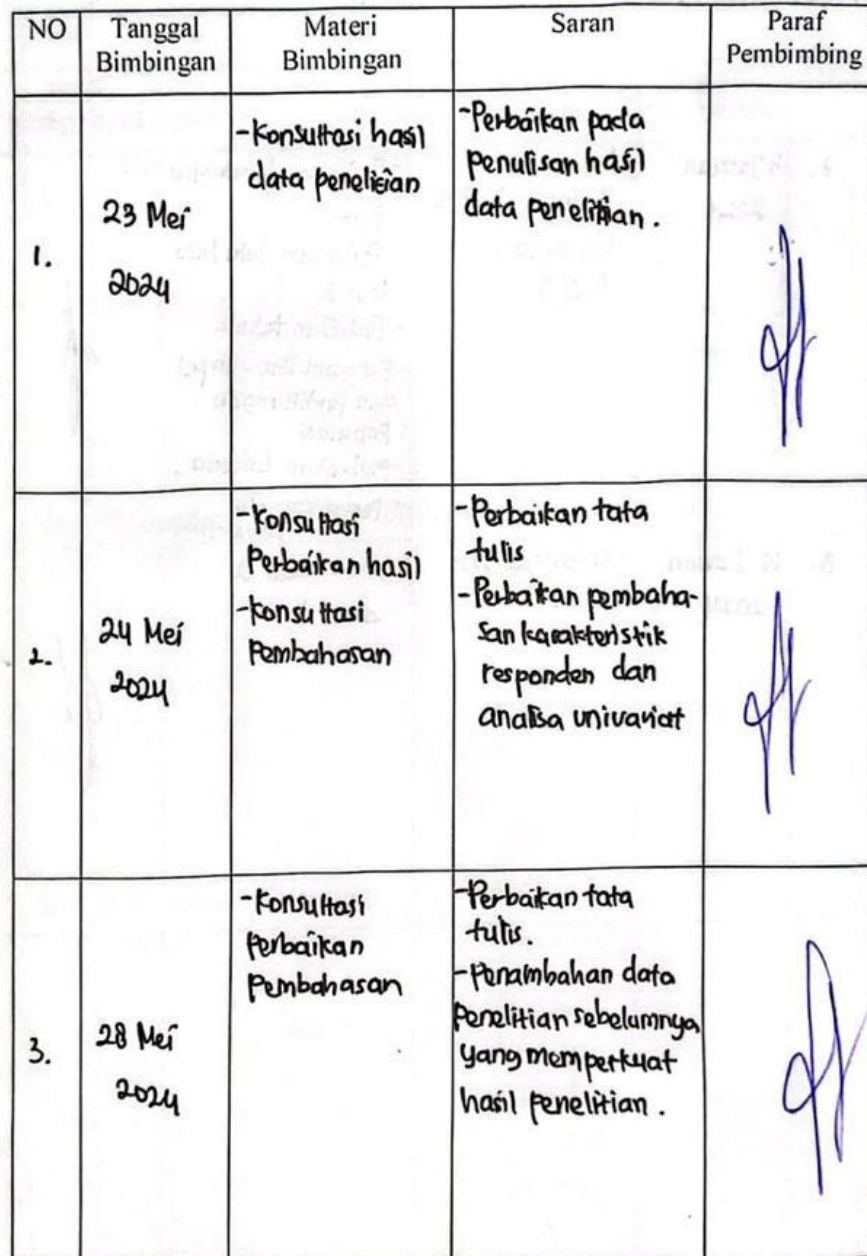 NO
Tanggal
Bimbingan
Materi
Bimbingan
Saran
Paraf
Pembimbing
1.
23 Mei
2024
-Konsultasi hasil
data penelitian
-Perbaikan pada
penulisan hasil
data penelitian.
2.
24 Mei
2024
-Konsultasi
Perbaikan hasil
-Konsultasi
Pembahasan
-Perbaikan tata
tulis
-Perbaikan pembaha-
san karakteristik
responden dan
analisa univariat
3.
28 Mei
2024
-Konsultasi
Perbaikan
Pembahasan
-Perbaikan tata
tulis.
-Penambahan data
Penelitian sebelumnya
yang memperkuat
hasil Penelitian.